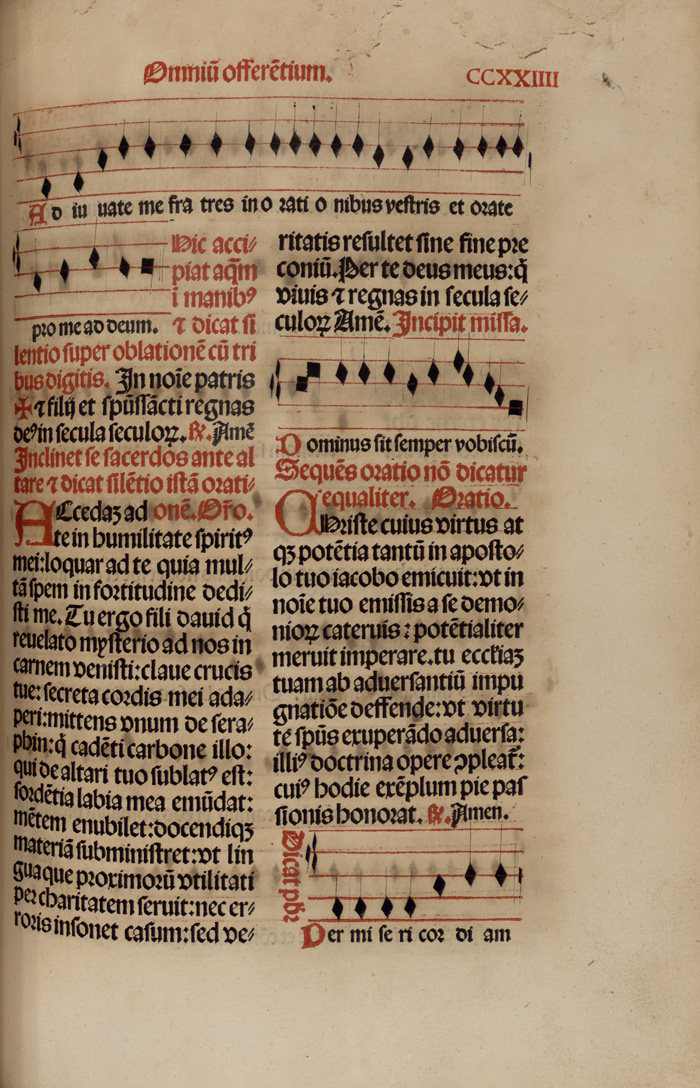 Omniū offerētium.
CCXXIIII
Ad iu uate me fra tres in o rati o nibus vestris et orate
pro me ad deum.
Hic acci⸗
piat aq̄m
ī manibꝰ
⁊ dicat si
lentio super oblationē cū tri
bus digitis. In noīe patris
✠ ⁊ filij et spūssācti regnas
deꝰ in secula seculoꝝ. ℟. Amē
Inclinet se sacerdos ante al
tare ⁊ dicat silētio istā orati⸗
onē. Oŕo.
ACcedaꝫ ad
te in humilitate spiritꝰ
mei: loquar ad te quia mul⸗
tā spem in fortitudine dedi⸗
sti me. Tu ergo fili dauid q̄
reuelato mysterio ad nos in
carnem venisti: claue crucis
tue: secreta cordis mei ada⸗
peri: mittens vnum de sera⸗
phin: q̄ cadēti carbone illo:
qui de altari tuo sublatꝰ est:
sordētia labia mea emūdat:
mētem enubilet: docendiqꝫ
materiā subministret: vt lin
gua que proximorū vtilitati
per charitatem seruit: nec er⸗
roris insonet casum: sed ve⸗
ritatis resultet sine fine pre
coniū. Per te deus meus: q̄
viuis ⁊ regnas in secula se⸗
culoꝝ Amē. Incipit missa.
Dominus sit semper vobiscū.
Sequēs oratio nō dicatur
equaliter. Oratio.
CHriste cuius virtus at
qꝫ potētia tantū in aposto⸗
lo tuo iacobo emicuit: vt in
noīe tuo emissis a se demo⸗
nioꝝ cateruis: potētialiter
meruit imperare. tu eccƚiaꝫ
tuam ab aduersantiū impu
gnatiōe deffende: vt virtu
te spūs exuperādo aduersa:
illiꝰ doctrina opere ꝯpleat̄:
cuiꝰ hodie exēplum pie pas
sionis honorat. ℟. Amen.
Dicat pb̄r
Per mi se ri cor di am